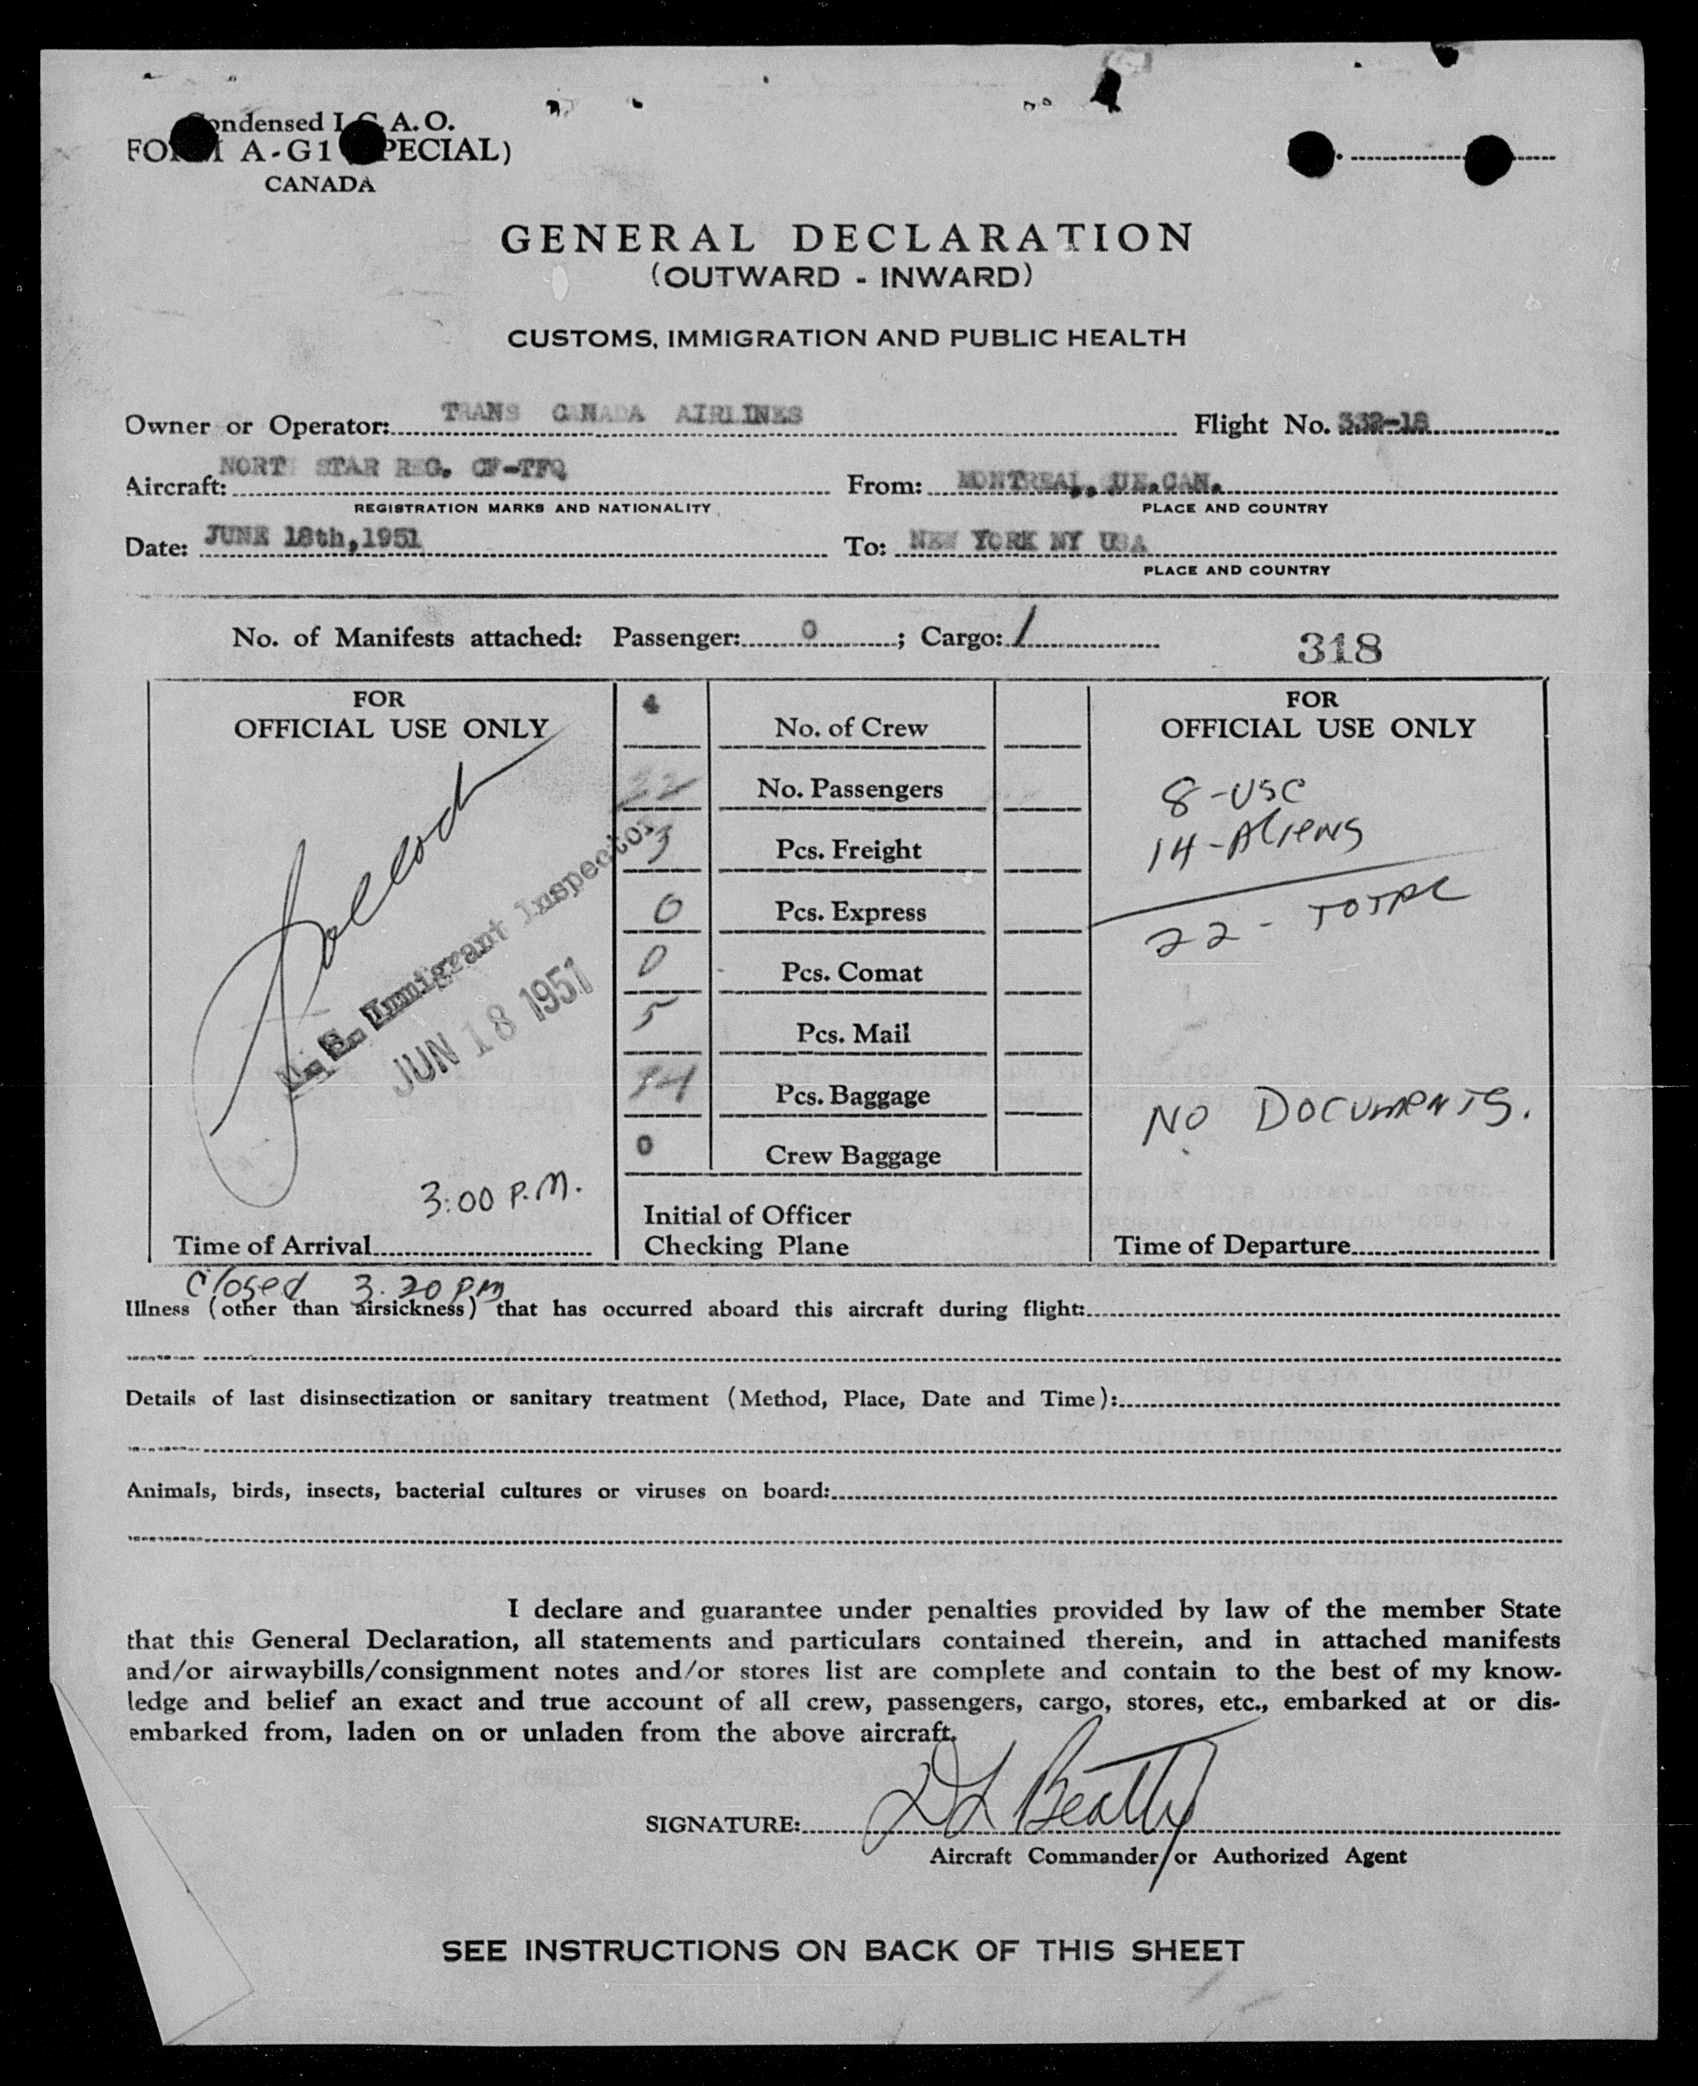 Condensed I.C.A.O.
FORM A-G1 (SPECIAL)
CANADA
GENERAL DECLARATION
(OUTWARD - INWARD)
CUSTOMS, IMMIGRATION AND PUBLIC HEALTH
Owner or Operator: TRANS CANADA AIRLINES Flight No. 332-18
Aircraft: NORTH STAR REG. CF-TFQ From: MONTREAL, CAN.
REGISTRATION MARKS AND NATIONALITY PLACE AND COUNTRY
Date: JUNE 18th,1951 To: NEW YORK NY USA
PLACE AND COUNTRY
No. of Manifests attached: Passenger: 0 ; Cargo: 1 318
FOR
OFFICIAL USE ONLY
U.S. Immigrant Inspector
JUN 18 1951
3:00 P.M.
Time of Arrival
4 No. of Crew
22 No. Passengers
3 Pcs. Freight
0 Pcs. Express
0 Pcs. Comat
5 Pcs. Mail
14 Pcs. Baggage
0 Crew Baggage
Initial of Officer
Checking Plane
FOR
OFFICIAL USE ONLY
8-USC
14-Aliens
22 - TOTAL
NO DOCUMENTS.
Time of Departure
Closed 3.20 pm
Illness (other than airsickness) that has occurred aboard this aircraft during flight:
Details of last disinsectization or sanitary treatment (Method, Place, Date and Time):
Animals, birds, insects, bacterial cultures or viruses on board:
I declare and guarantee under penalties provided by law of the member State
that this General Declaration, all statements and particulars contained therein, and in attached manifests
and/or airwaybills/consignment notes and/or stores list are complete and contain to the best of my know-
ledge and belief an exact and true account of all crew, passengers, cargo, stores, etc., embarked at or dis-
embarked from, laden on or unladen from the above aircraft.
SIGNATURE: DL Beatty
Aircraft Commander or Authorized Agent
SEE INSTRUCTIONS ON BACK OF THIS SHEET